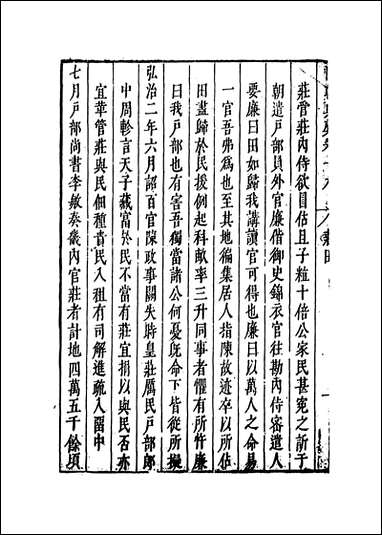 莊管莊内侍欲冒估且子粒十倍公家民甚寃之訴于
朝遣戸部員外官廉偕御史錦衣官往勘内侍審遣人
要廉曰田如歸我講讀官可得也廉曰以萬人之命易
一官吾弗爲也至其地徧集居人指陳故迹卒以所佔
田盡歸於民援例起科畝率三升同事者懼有所忤廉
曰我戸部也有害吾獨當諸公何憂旣命下皆從所擬
弘治二年六月詔百官陳政事闕失時皇莊厲民戸部郎
中周軫言天子藏富於民不當有莊宜捐以與民否亦
宜革管莊與民佃種責民入租有司解進疏入留中
七月戸部尚書李敏奏畿内官莊者計地四萬五千餘頃